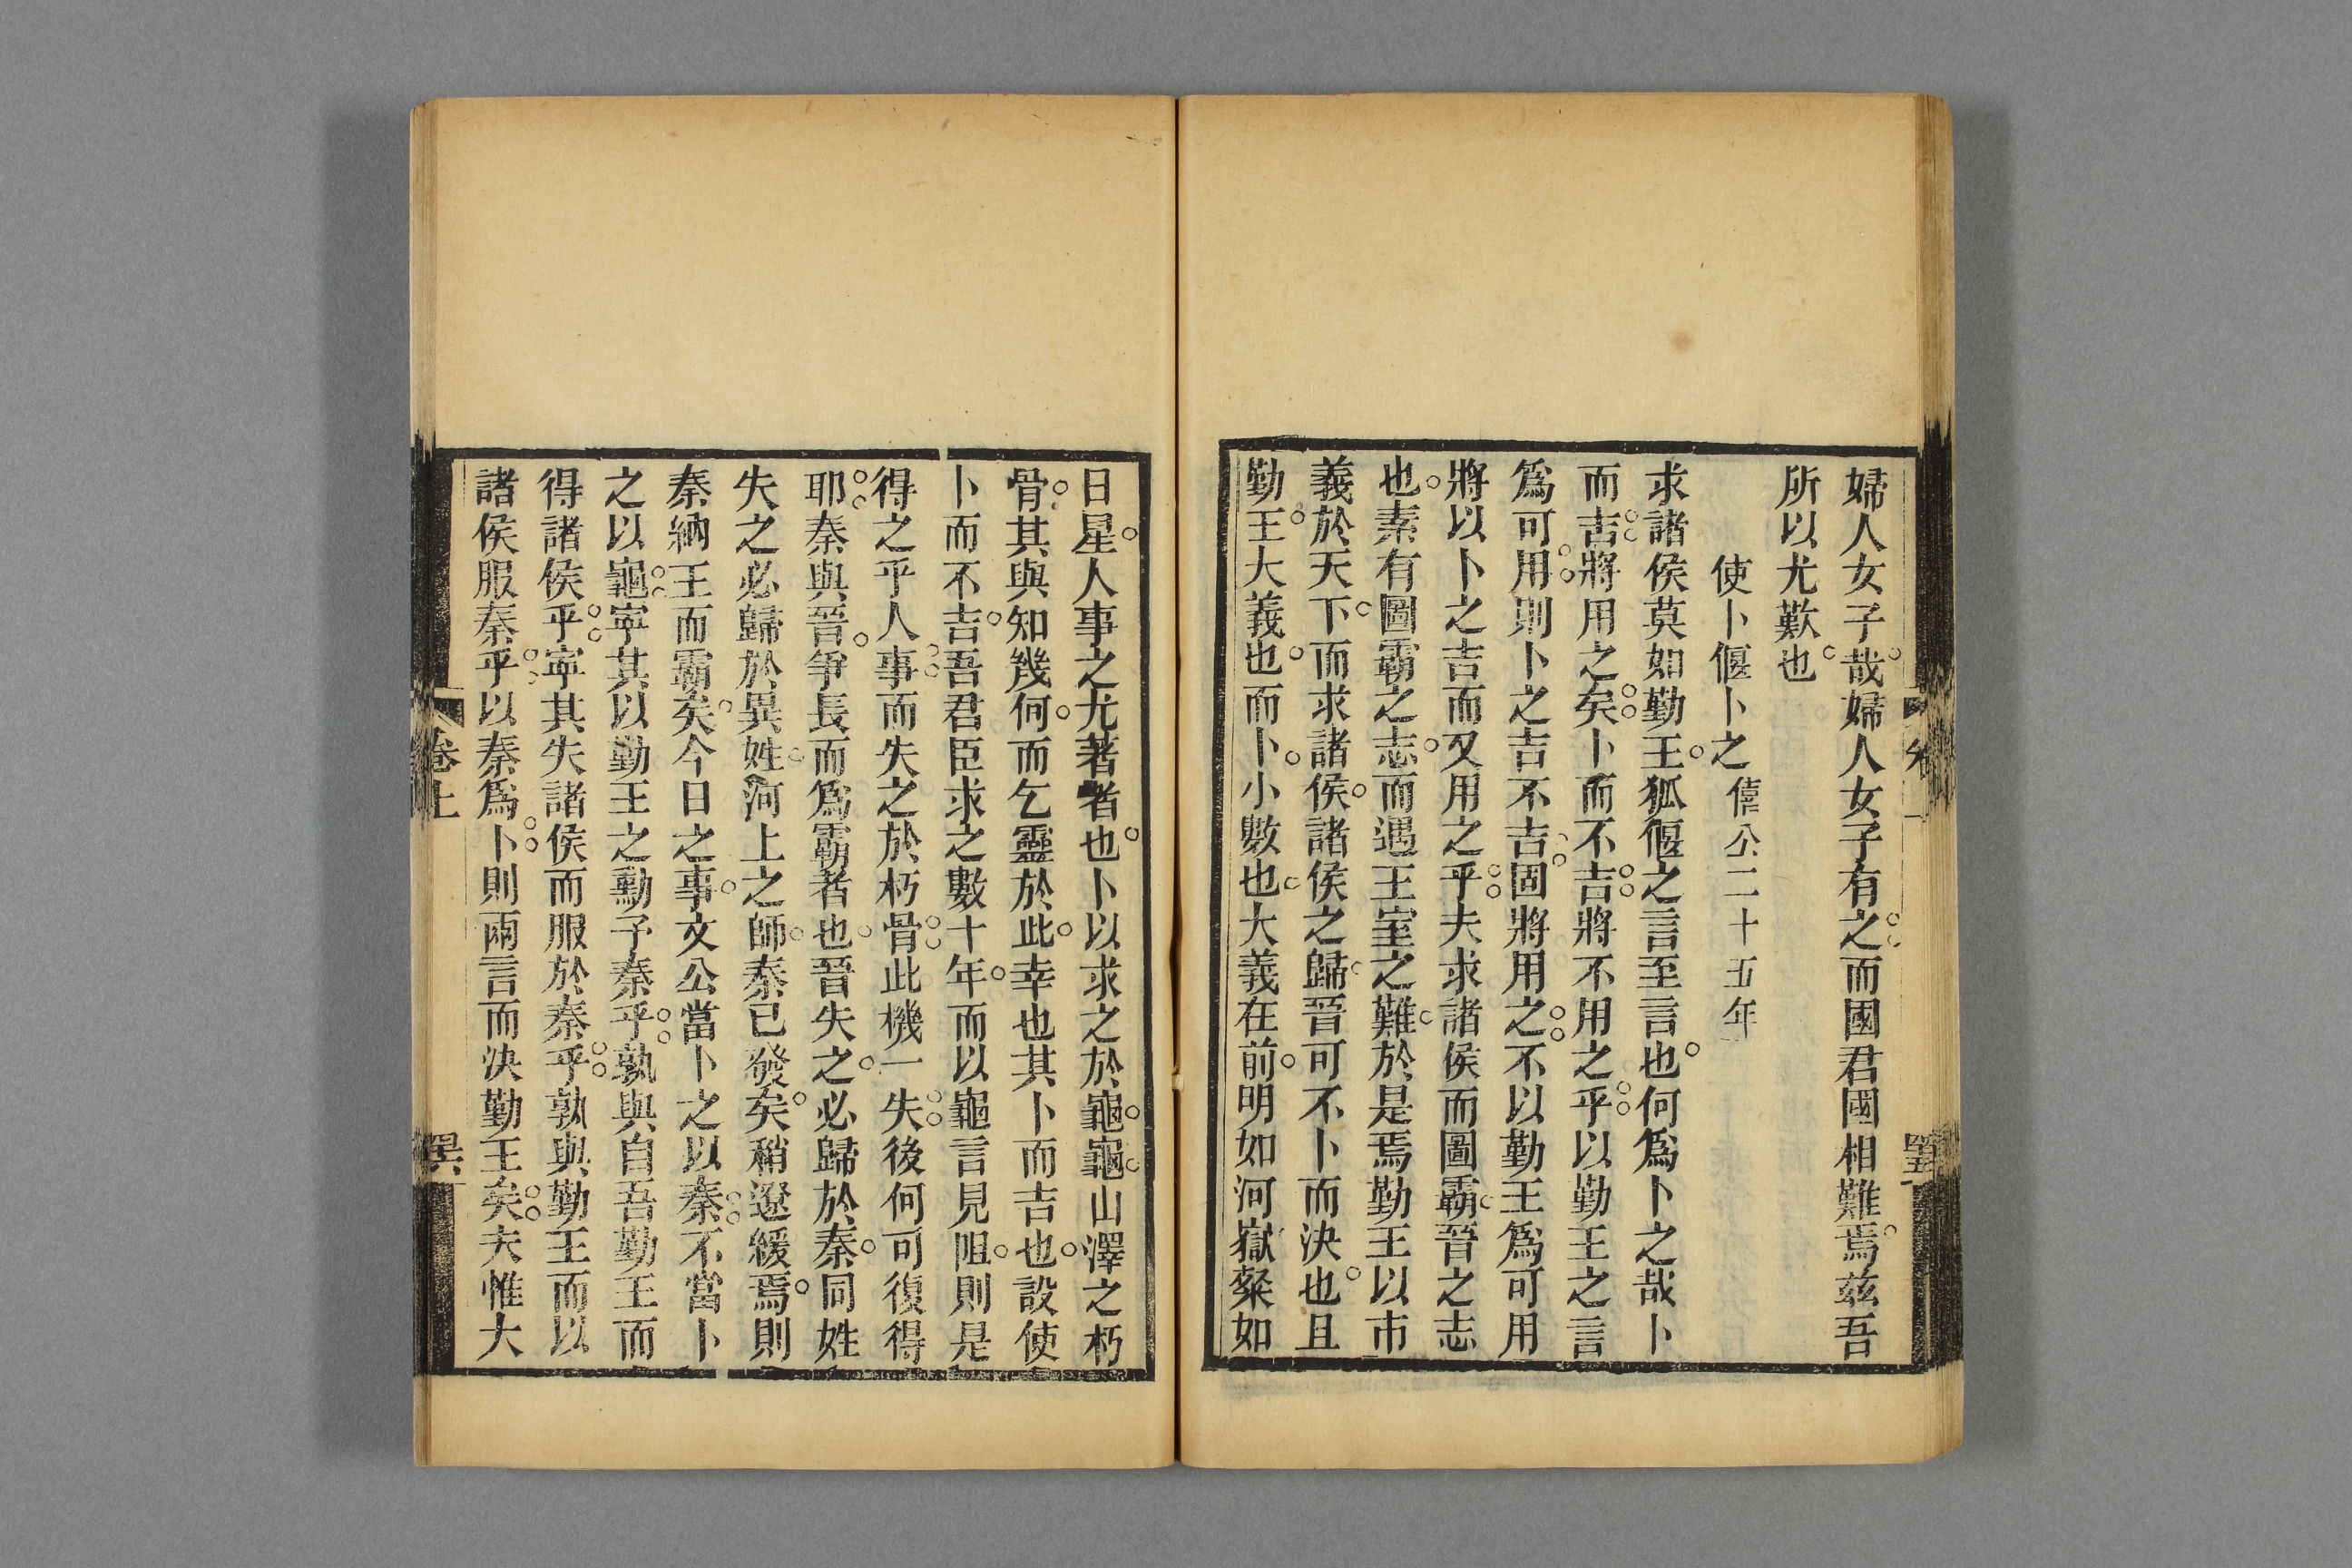 婦人女子哉婦人女子有之而國君國相難焉兹吾
所以尤歎也
使卜偃卜之僖公二十五年
求諸侯莫如勤王狐偃之言至言也何爲卜之哉卜
而吉將用之矣卜而不吉將不用之乎以勤王之言
爲可用則卜之吉不吉固將用之不以勤王爲可用
將以卜之吉而又用之乎夫求諸侯而圖霸晉之志
也素有圖霸之志而遇王室之難於是焉勤王以市
義於天下而求諸侯諸侯之歸晉可不卜而決也且
勤王大義也而卜小數也大義在前明如河嶽粲如
日星人事之尤著者也卜以求之於龜龜山澤之朽
骨其與知幾何而乞靈於此幸也其卜而吉也設使
卜而不吉吾君臣求之數十年而以龜言見阻則是
得之乎人事而失之於朽骨此機一失後何可復得
耶秦與晉爭長而爲霸者也晉失之必歸於秦同姓
失之必歸於異姓河上之師秦已發矣稍遼緩焉則
秦納王而霸矣今日之事文公當卜之以秦不當卜
之以龜寧其以勤王之勳子秦乎孰與自吾勤王而
得諸侯乎寧其失諸侯而服於秦乎孰與勤王而以
諸侯服秦乎以秦爲卜則兩言而決勤王矣夫惟大
卷上